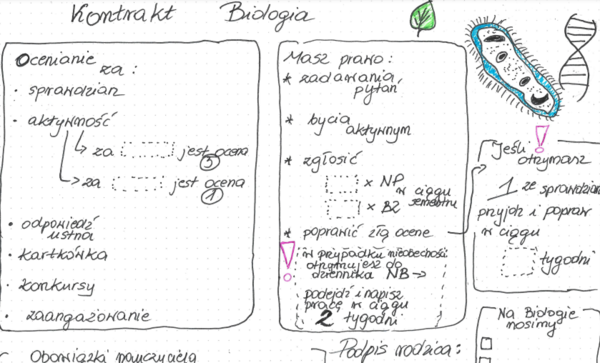 Kontrakt Biologia
Ocenianie
za:
· sprawdzian
· aktywność
za jest ocena
5
za jest ocena
1
· odpowiedź
ustna
· kartkówka
· konkursy
· zaangażowanie
Masz prawo:
* zadawania
pytań
* bycia
aktywnym
* zgłosić
x NP
x BZ
w ciągu
semestru
* poprawić złą ocene
! w przypadku nieobecności
otrzymujesz do
dziennika NB →
podejdź i napisz
pracę w ciągu
2 tygodni
Jeśli !
otrzymasz
1 ze sprawdzian
przyjdź i popraw
w ciągu
tygodni
Na Biologie
nosimy
Obowiązki nauczyciela
Podpis rodzica: